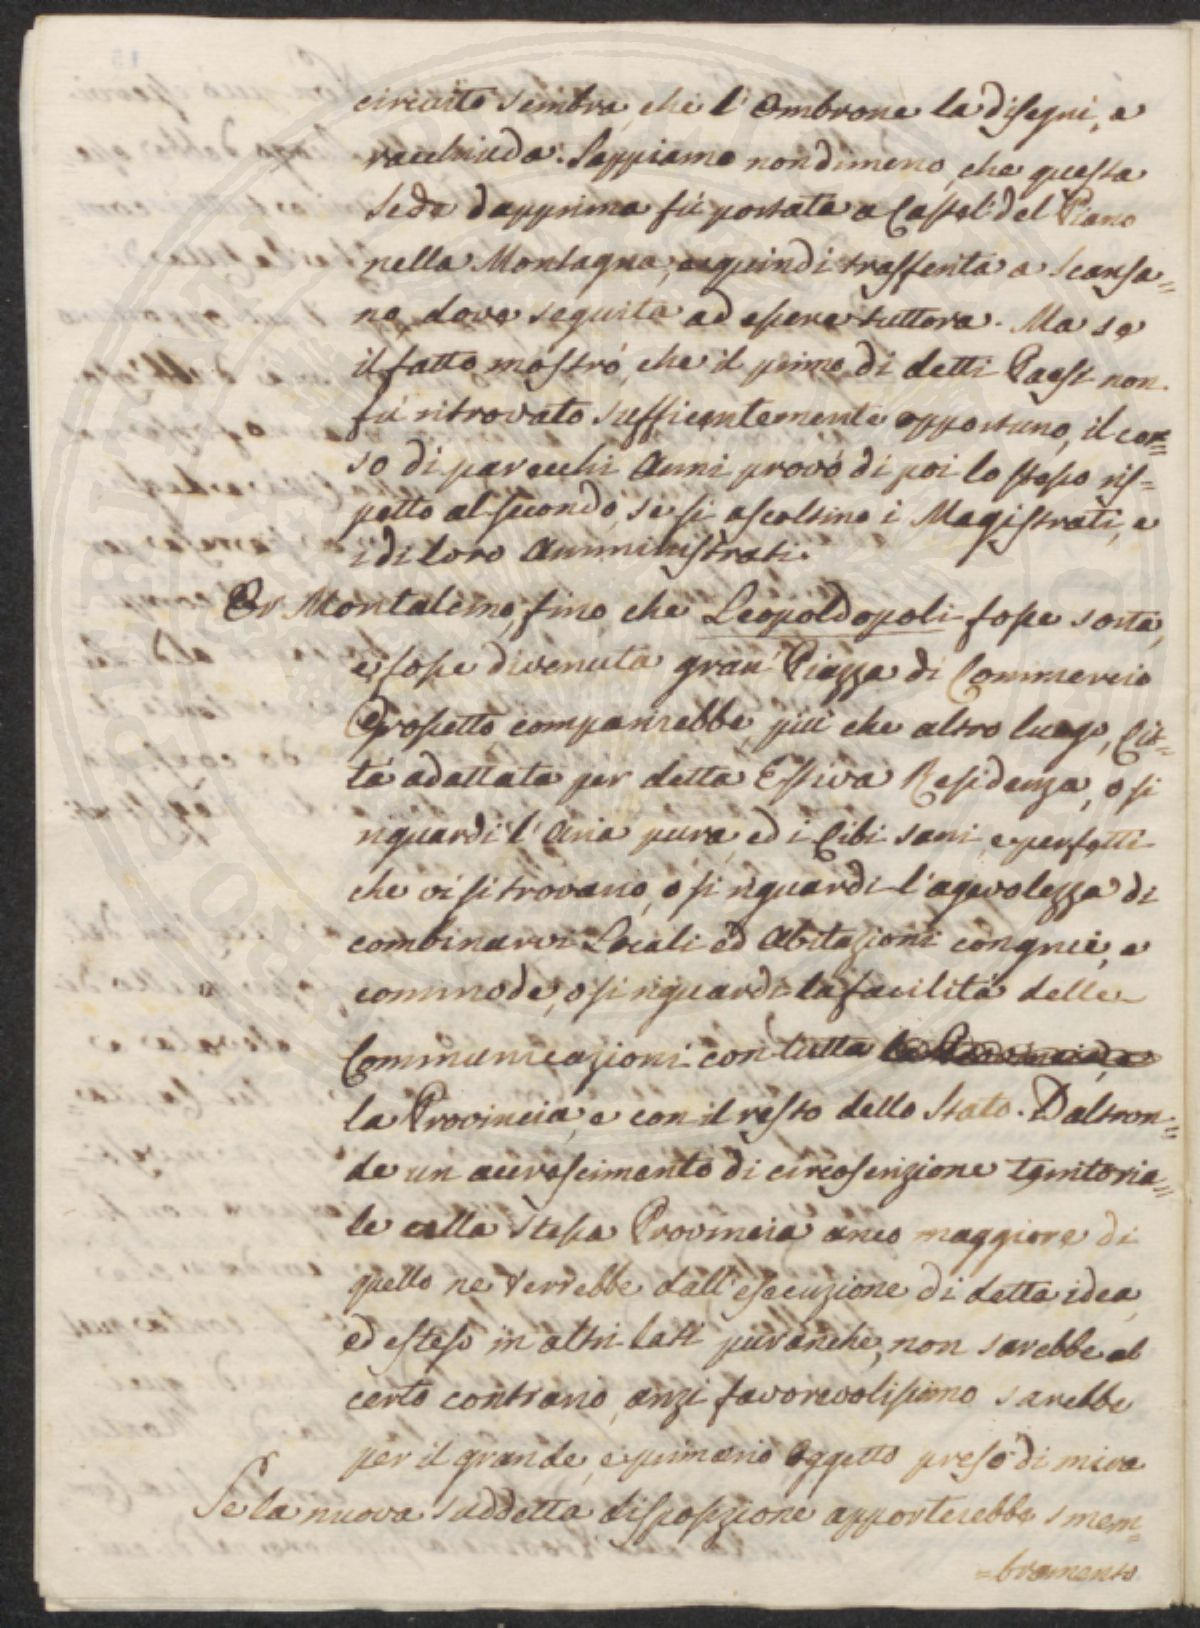 circuito sembra, che l'Ombrone la disegni, e
racchiuda. Sappiamo nondimeno, che questa
Sede dapprima fù portata a Castel del Piano
nella Montagna, e quindi trasferita a Scansa=
no, dove seguita ad essere tuttora. Ma se
il fatto mostrò, che il primo di detti Paesi non
fù ritrovato sufficentemente opportuno, il cor=
so di parecchi Anni provò di poi lo stesso ris=
petto al secondo, se si ascoltino i Magistrati, e
i di loro Amministrati.
Or Montalcino, fino che Leopoldopoli fosse sorta,
e fosse divenuta gran Piazza di Commercio
Grosseto comparirebbe, più che altro luogo, Cit=
tà adattata per detta Estiva Residenza, o si
riguardi l'Aria pura, ed i Cibi sani, e perfetti
che vi si trovano, o si riguardi l'agevolezza di
combinarvi Locali ed Abitazioni congrue, e
commode, o si riguardi la facilità delle
Communicazioni con tutta
la Provincia, e con il resto dello Stato. D'altron=
de un accrescimento di circoscrizione territoria=
le alla stessa Provincia anco maggiore di
quello ne verrebbe dall'esecuzione di detta idea,
ed esteso in altri lati pur anche, non sarebbe al
certo contrario, anzi favorevolissimo sarebbe
per il grande, e primario Oggetto preso di mira
Se la nuova suddetta disposizione apporterebbe smem=
=bramento
PUBLICUM